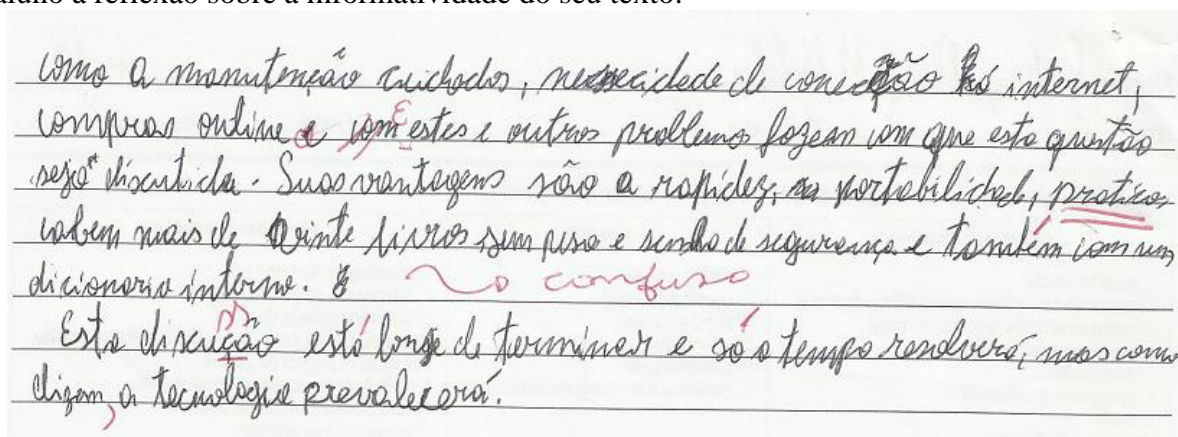 aluno a reflexão sobre a informatividade do seu texto:
como a manutenção cuidados, necidede de conecção há internet,
compras online e com estes e outros problemas fazem com que esta questão
seja discutida. Suas vantagens são a rapidez, portabilidade, praticas,
cabem mais de vinte livros sem peso e senha de segurança e também com um
dicionario interno.
confuso
Esta discução está longe de terminar e só o tempo resolverá, mas como
dizem, a tecnologia prevalecerá.